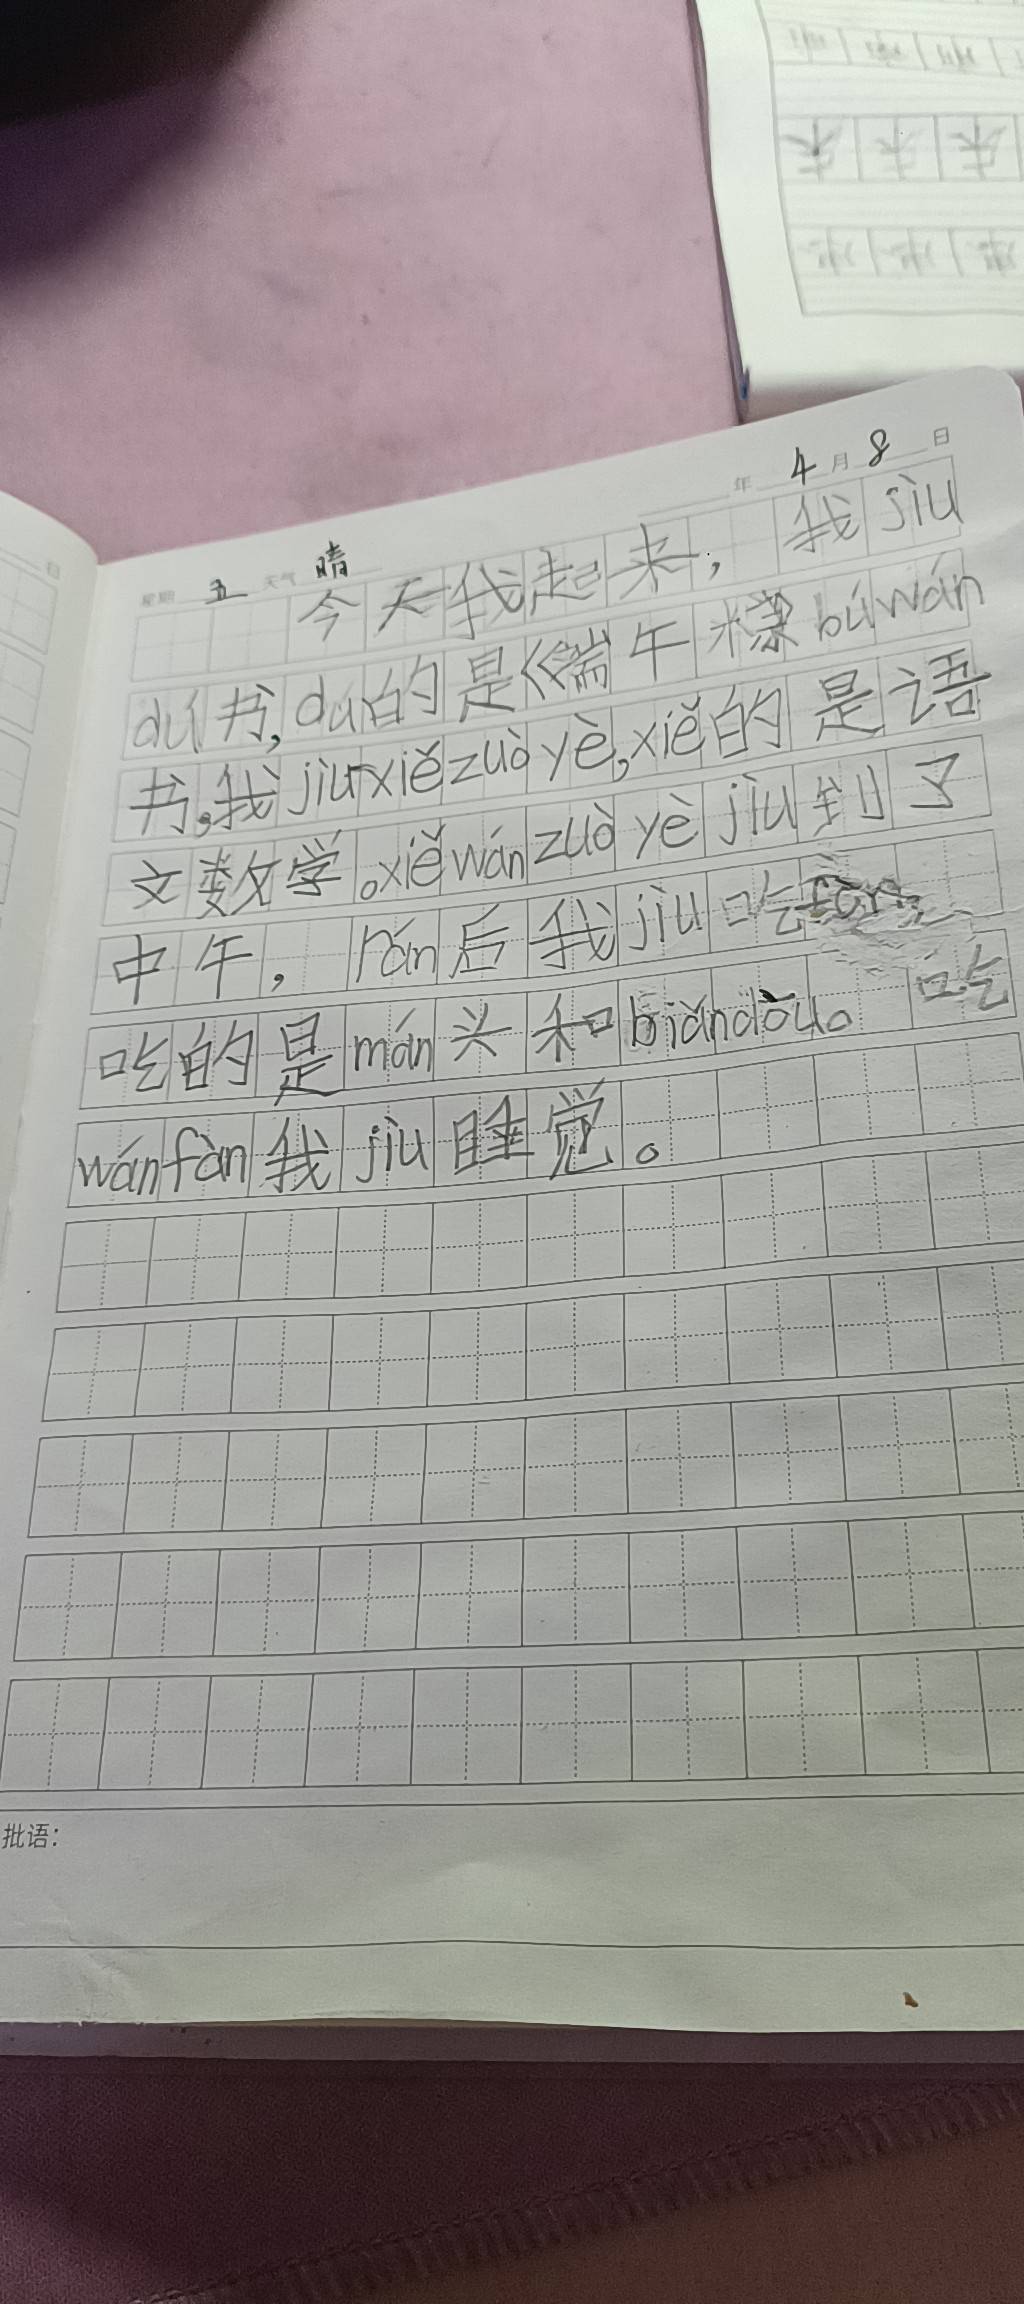 年 4 月 8 日
星期 五 天气 晴
今天我起来，我jiù
dú书，dú的是《端午粽 dúwán
书。我jiùxiězuòyè，xiě的是语
文数学。xiěwánzuòyèjiù到了
中午，rán后我jiù吃fàn，
吃的是mán头和biǎndòu。吃
wánfàn我jiù睡觉。
批语：